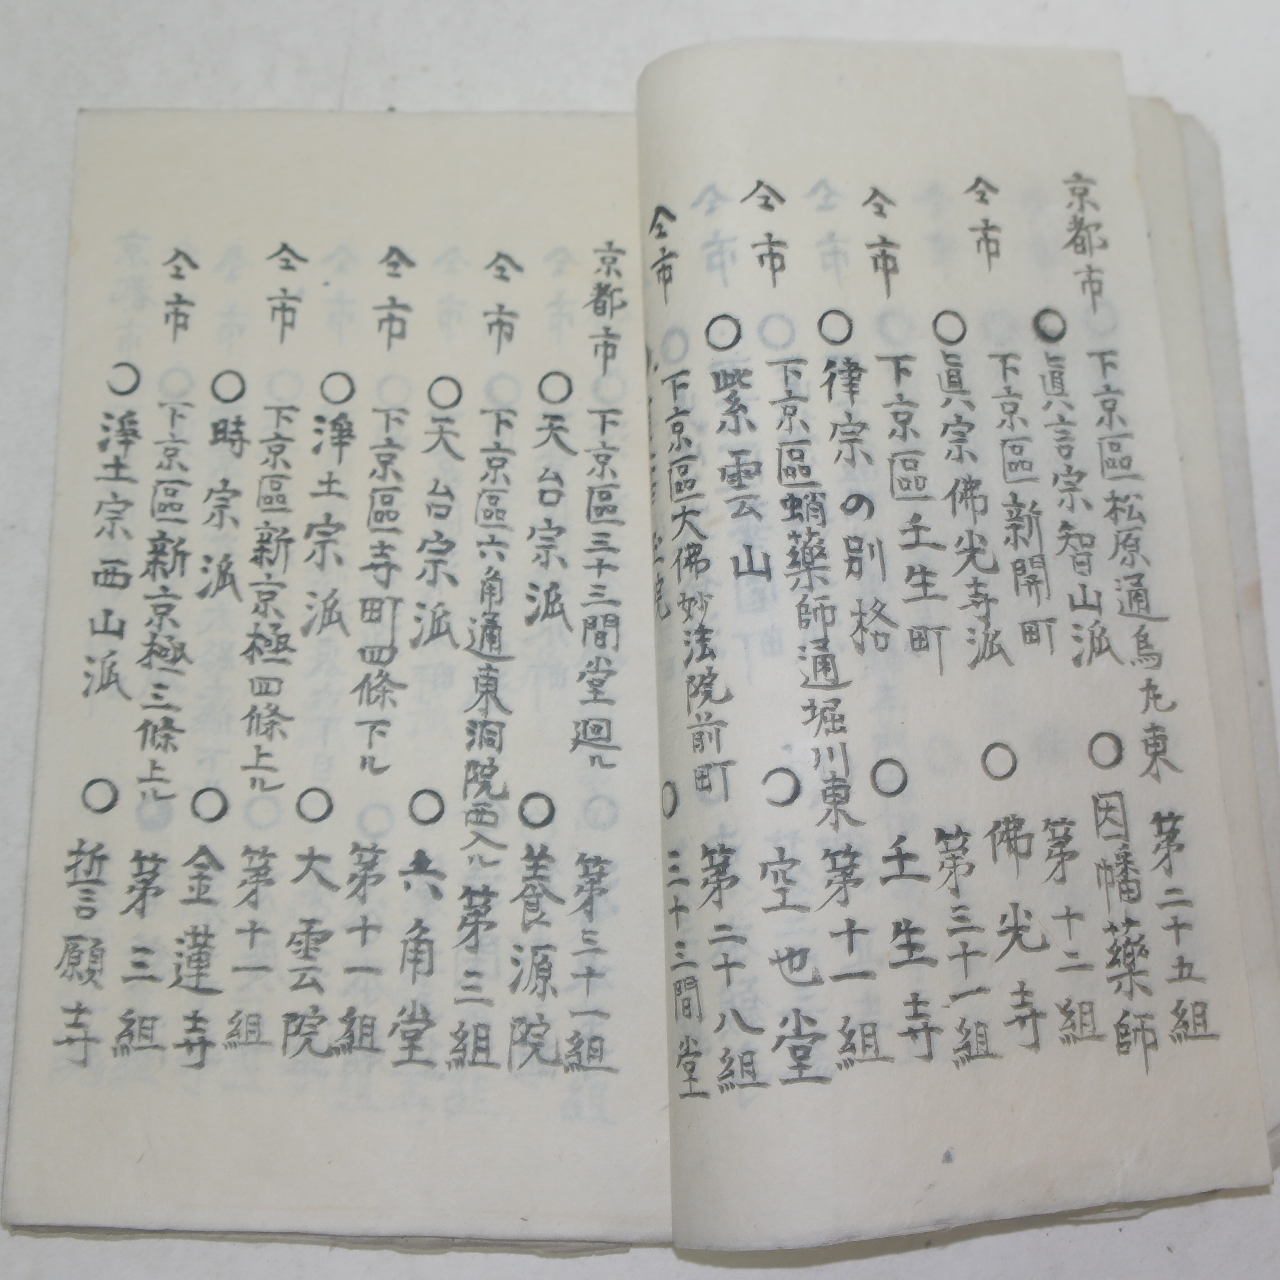 京都市 下京區松原通烏丸東 第二十五組
○眞言宗智山派 ○因幡藥師
仝市 下京區新開町 第十二組
○眞宗佛光寺派 ○佛光寺
仝市 下京區壬生町 第三十一組
○律宗の別格 ○壬生寺
仝市 下京區蛸藥師通堀川東 第十一組
○紫雲山 ○空也堂
仝市 下京區大佛妙法院前町 第二十八組
院 ○三十三間堂
京都市 下京區三十三間堂廻ル 第三十一組
○天台宗派 ○養源院
仝市 下京區六角通東洞院西入ル 第三組
○天台宗派 ○六角堂
仝市 下京區寺町四條下ル 第十一組
○淨土宗派 ○大雲院
仝市 下京區新京極四條上ル 第十一組
○時宗派 ○金蓮寺
仝市 下京區新京極三條上ル 第三組
○淨土宗西山派 ○誓願寺